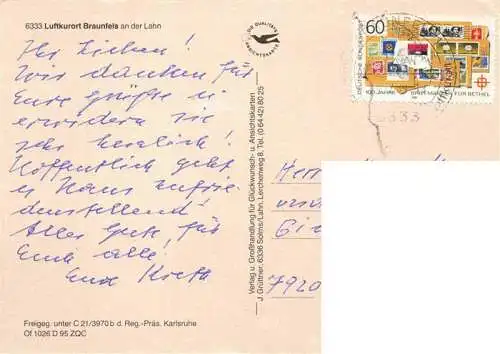 6333 Luftkurort Braunfels an der Lahn
Ihr Lieben!
Wir danken für
Eure Grüße u.
erwidern sie
sehr herzlich!
Hoffentlich geht
es Hans zufrie-
denstellend
Alles Gute für
Euch alle!
Eure
Freigeg. unter C 21/3970 b d. Reg.-Präs. Karlsruhe
Öf 1026 D 95 ZQC
DIE QUALITÄTS
ANSICHTSKARTE
Verlag u. Großhandlung für Glückwunsch- u. Ansichtskarten
J. Grüttner, 6336 Solms/Lahn, Lerchenweg 8, Tel. (0 64 42) 80 25
60
DEUTSCHE BUNDESPOST
100 JAHRE BRIEFMARKEN FÜR BETHEL
6333
Herr
7920